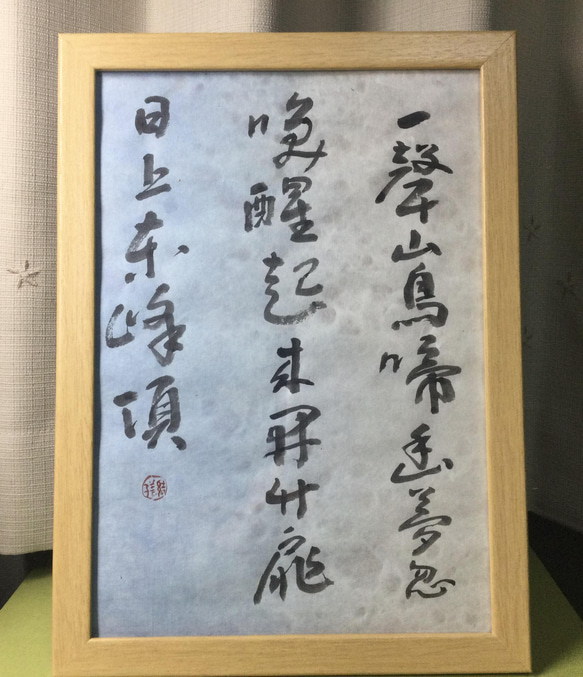 一聲山鳥啼幽夢忽
喚醒起來開竹扉
日上東峰頂